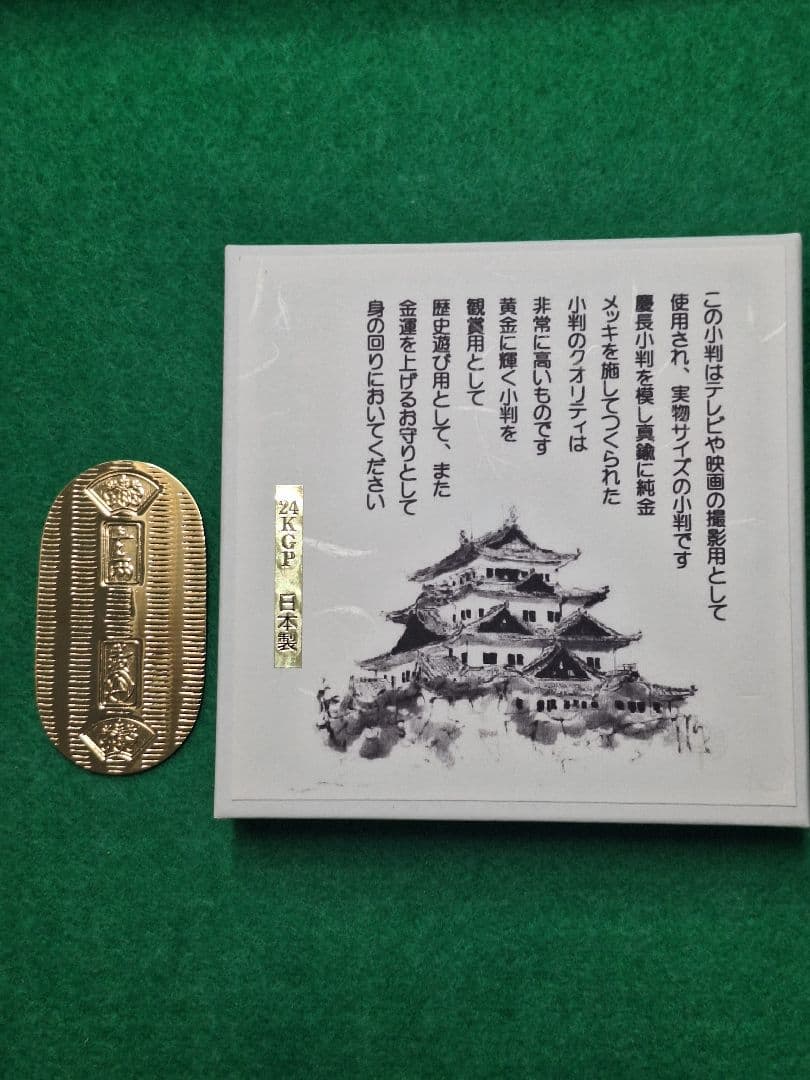 この小判はテレビや映画の撮影用として
使用され、実物サイズの小判です
慶長小判を模し真鍮に純金
メッキを施してつくられた
小判のクオリティは
非常に高いものです
黄金に輝く小判を
観賞用として
歴史遊び用として、また
金運を上げるお守りとして
身の回りにおいてください
24KGP 日本製